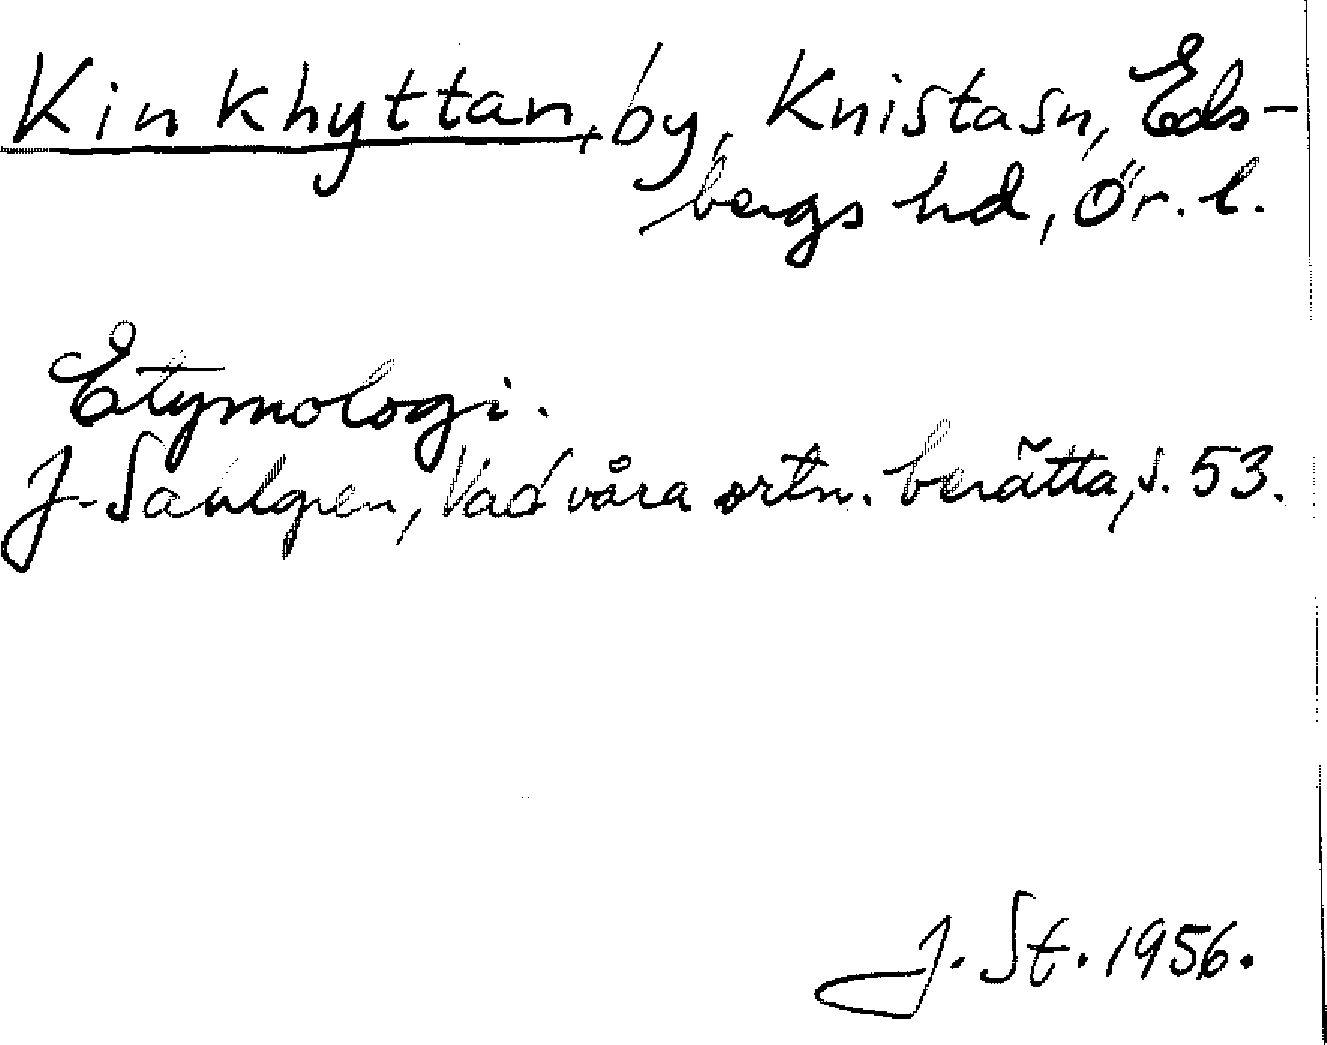 Kinkhyttan, by, Knista sn, Eds-
bergs hd, Ör. l.
Etymologi.
J. Sahlgren, Vad våra ortn. berätta, s. 53.
J. St. 1956.